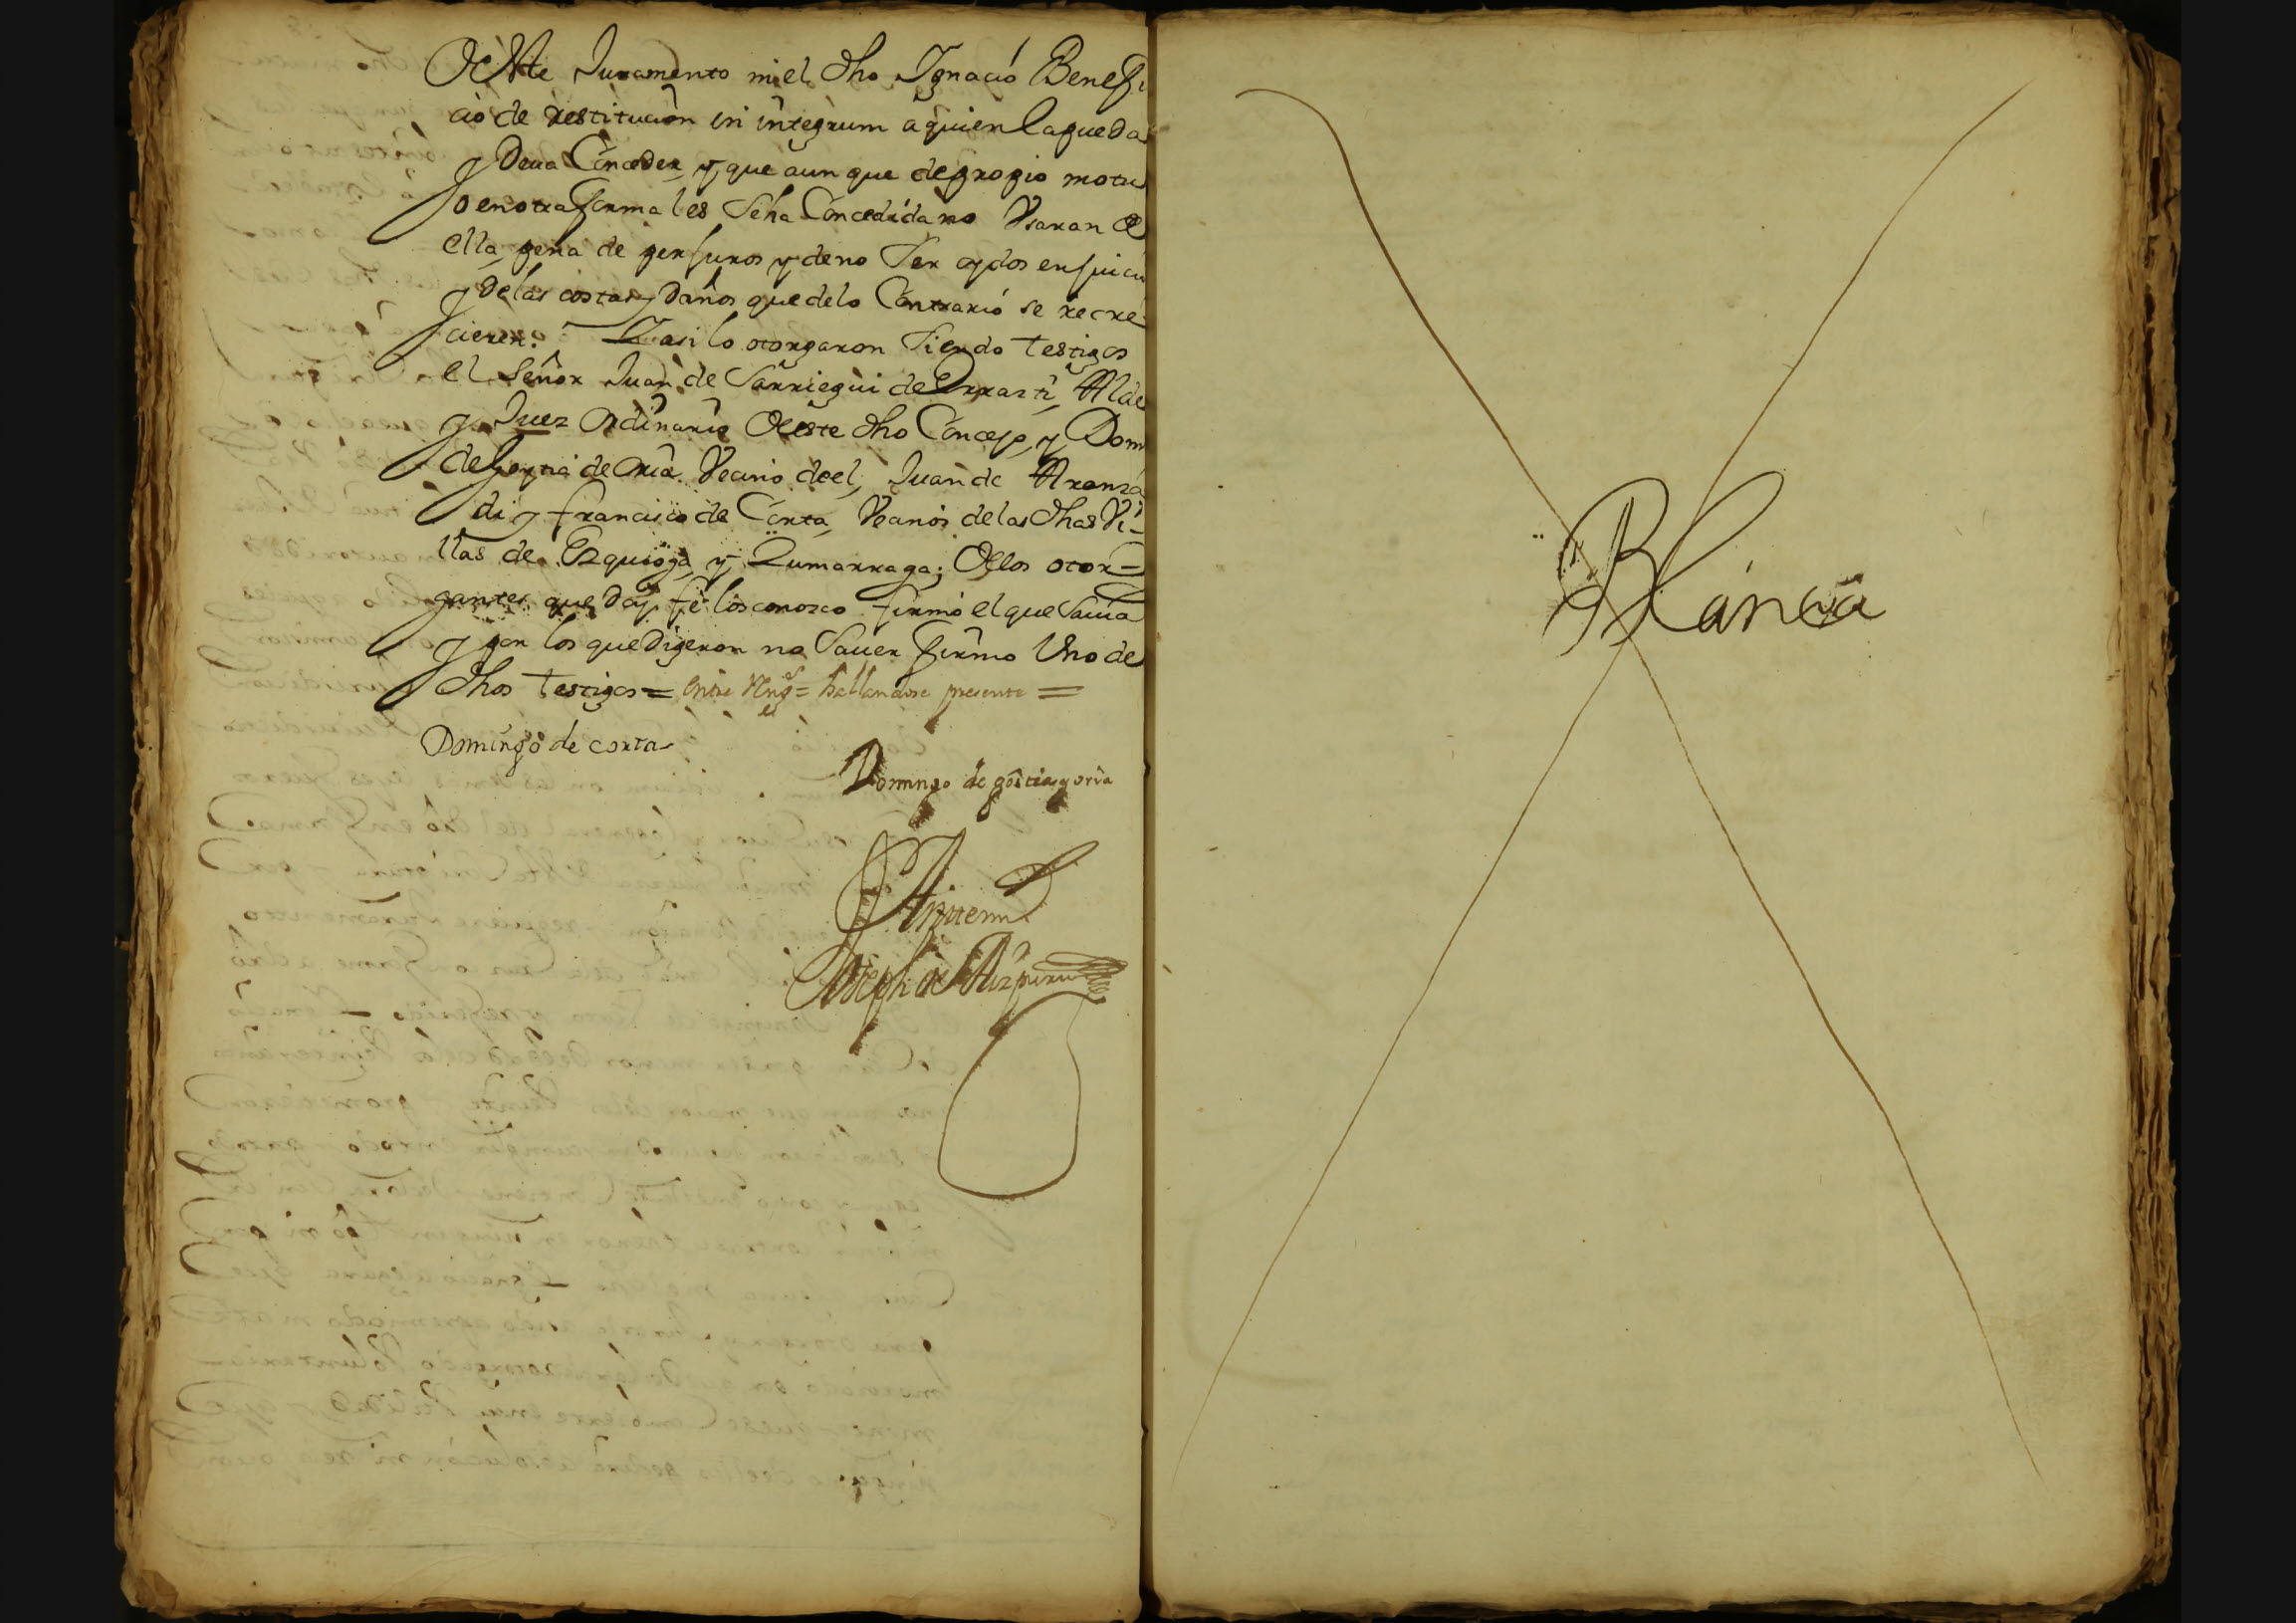 De este Juramento ni el dho Ignacio Benefi
cio de restitucion in integrum a quien la pueda
y Deua Conceder, y que aun que de propio motu
o en otra forma les Seha Concedida no Vsaran de
ella, pena de perjuros y de no Ser oydos en juicio
y de las costas y Daños que de lo Contrario se recre
cieren. Y asi lo otorgaron Siendo testigos
el Señor Juan de Sarriegui de Errazti, Alde
y Juez Ordinario De este dho Concejo, y Domo
de de Oria Vecino de el, Juan de Aranza
di y francisco de Corta, Vecinos de las dhas Vi-
llas de Ezquioga, y Zumarraga; De los otor=
gantes que Doy fe los conozco firmo el que Sauia
y por los que Digeron no Sauer firmo Vno de
dhos testigos = entre Rengs = hallandose presente =
Domingo de corta
Domingo de
Ante mi
Joseph de Aizpuru
Blanca